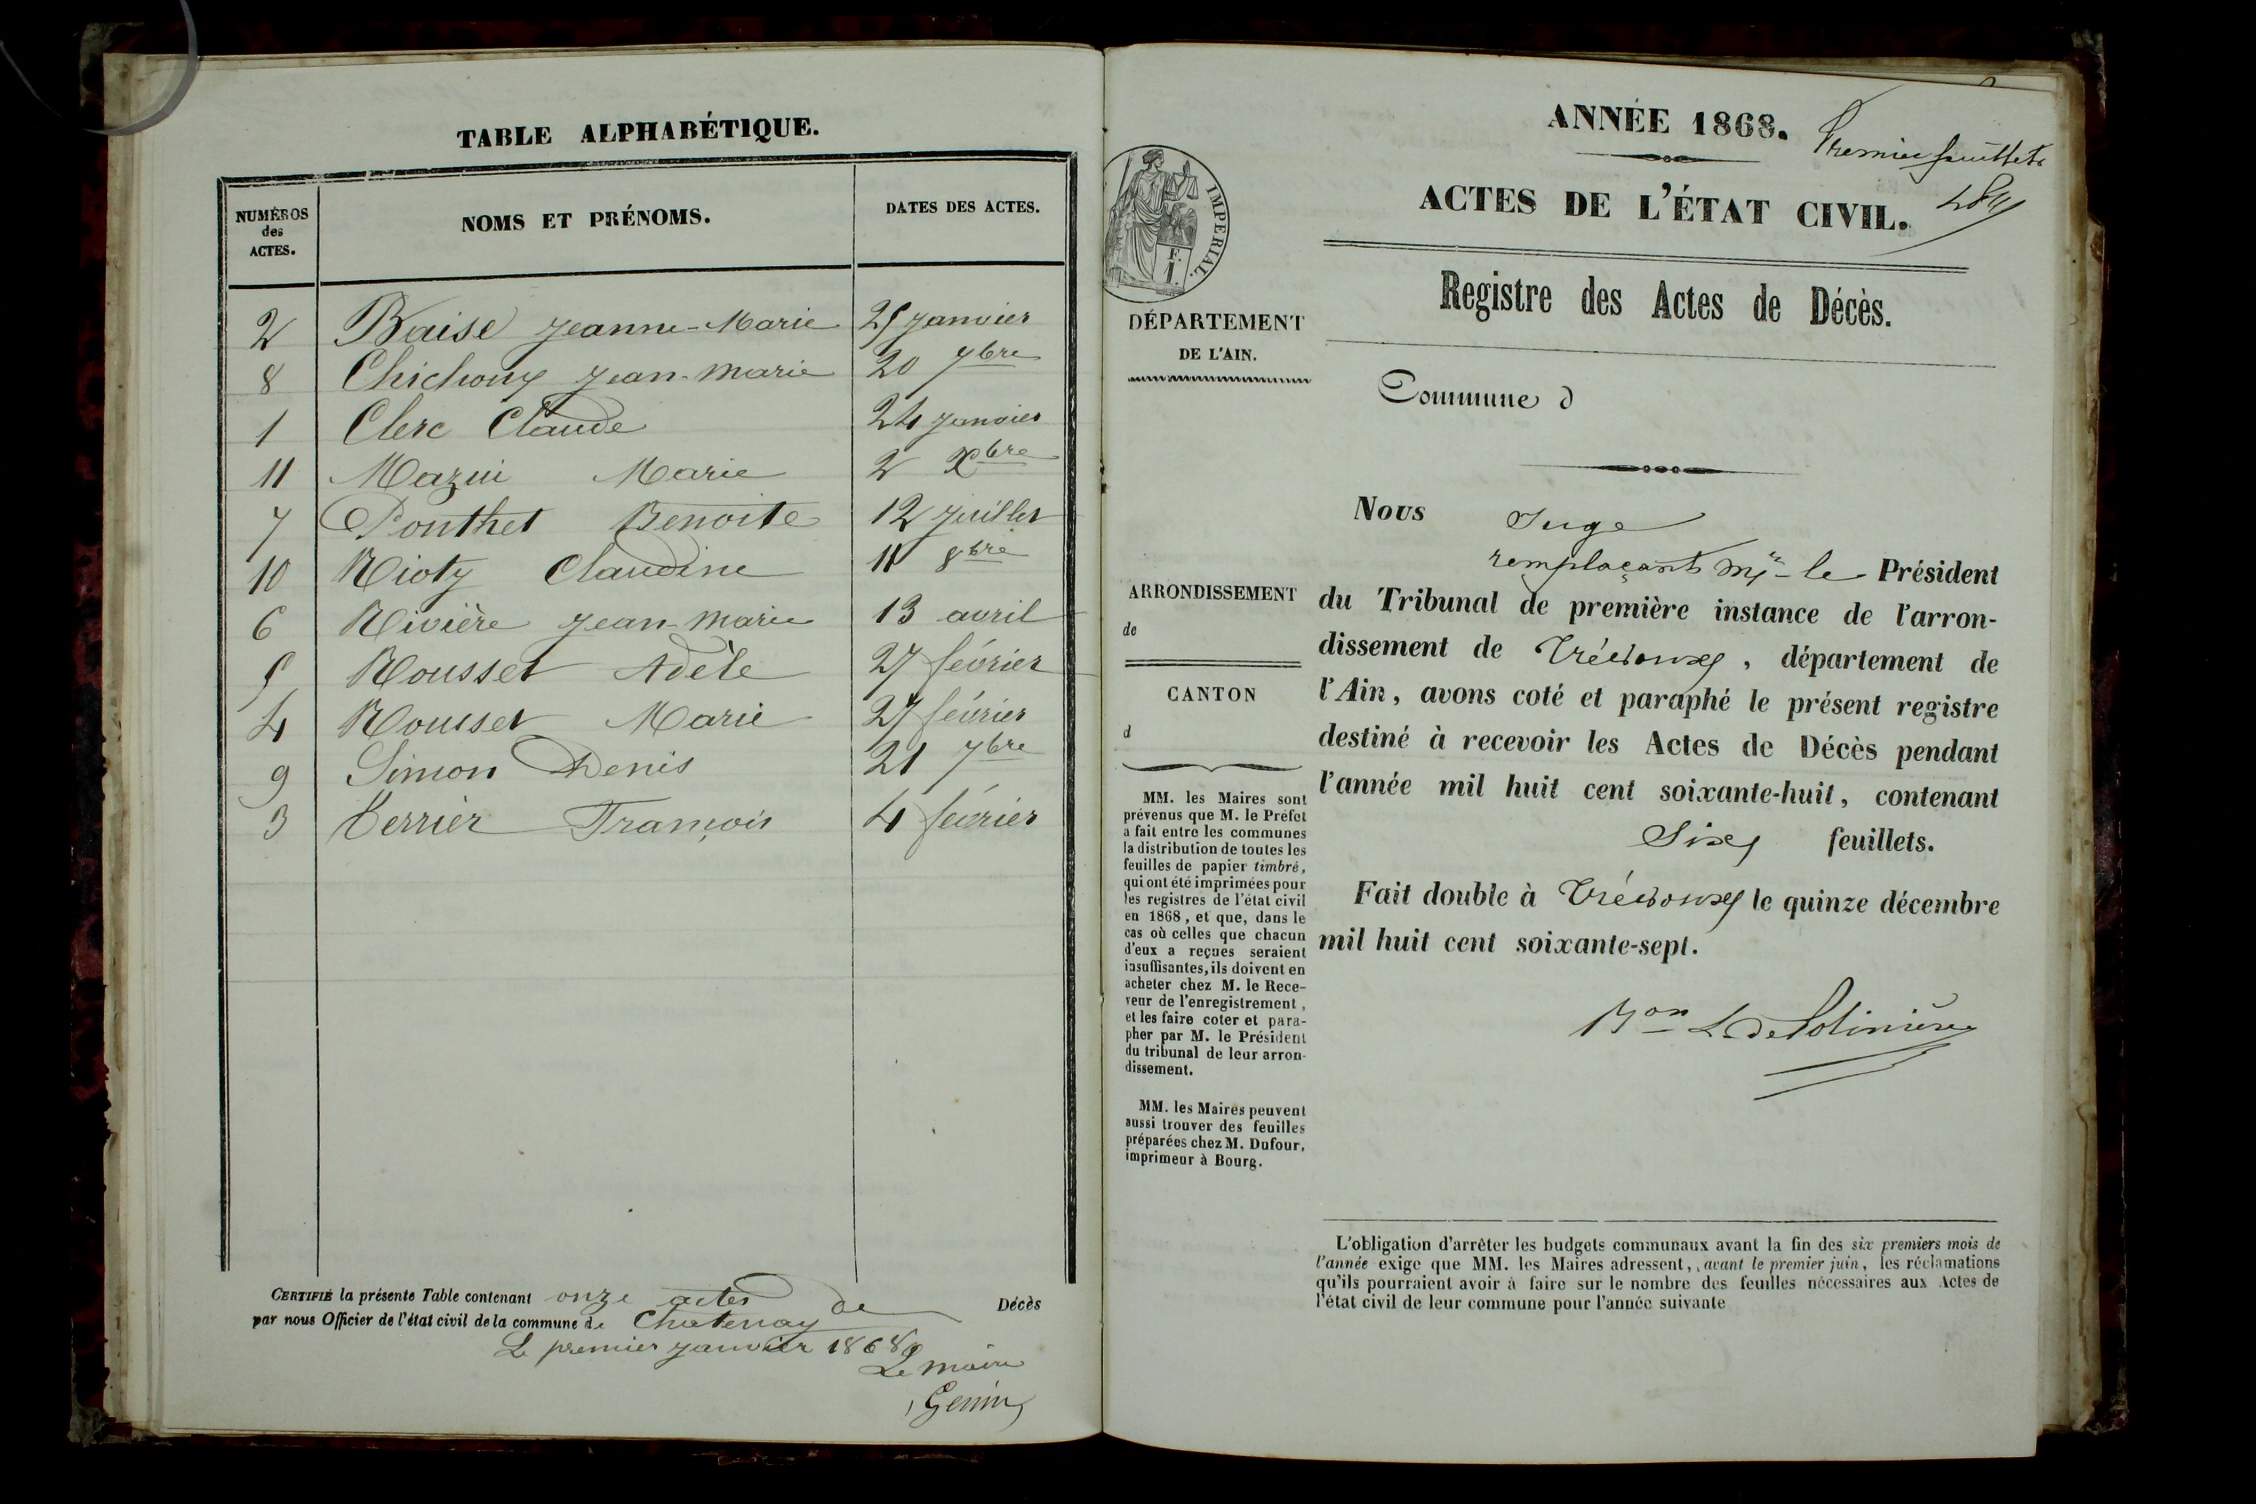 TABLE ALPHABÉTIQUE.
NUMÉROS
des
ACTES.
NOMS ET PRÉNOMS.
DATES DES ACTES.
2 Baise Jeanne-Marie 25 janvier
8 Jean-Marie 20 7bre
1 Clerc Claude 24 janvier
11 Mazui Marie 2 Xbre
7 Ponthet Benoite 12 juillet
10 Rioty Claudine 11 8bre
6 Rivière Jean-Marie 13 avril
5 Rousset Adèle 27 février
4 Rousset Marie 27 février
9 Simon Denis 21 7bre
3 Verrier François 4 février
CERTIFIÉ la présente Table contenant onze actes de Décès
par nous Officier de l'état civil de la commune de Chatenay
Le premier janvier 1868
Le maire
Genin
ANNÉE 1868.
Premier feuillet
ACTES DE L'ÉTAT CIVIL.
Registre des Actes de Décès.
IMPERIAL.
F.
1
DÉPARTEMENT
DE L'AIN.
Commune d
ARRONDISSEMENT
de
CANTON
d
MM. les Maires sont
prévenus que M. le Préfet
a fait entre les communes
la distribution de toutes les
feuilles de papier timbré,
qui ont été imprimées pour
les registres de l'état civil
en 1868, et que, dans le
cas où celles que chacun
d'eux a reçues seraient
insuffisantes, ils doivent en
acheter chez M. le Rece-
veur de l'enregistrement,
et les faire coter et para-
pher par M. le Président
du tribunal de leur arron-
dissement.
MM. les Maires peuvent
aussi trouver des feuilles
préparées chez M. Dufour,
imprimeur à Bourg.
Nous Juge
remplaçant Mr le Président
du Tribunal de première instance de l'arron-
dissement de Trévoux, département de
l'Ain, avons coté et paraphé le présent registre
destiné à recevoir les Actes de Décès pendant
l'année mil huit cent soixante-huit, contenant
Six feuillets.
Fait double à Trévoux le quinze décembre
mil huit cent soixante-sept.
Bon
L'obligation d'arrêter les budgets communaux avant la fin des six premiers mois de
l'année exige que MM. les Maires adressent, avant le premier juin, les réclamations
qu'ils pourraient avoir à faire sur le nombre des feuilles nécessaires aux Actes de
l'état civil de leur commune pour l'année suivante